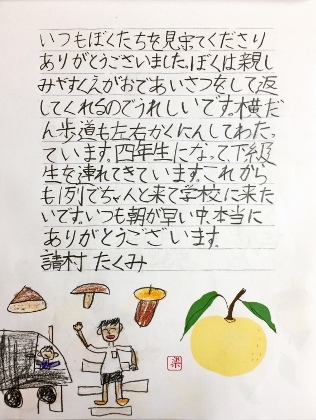 いつもぼくたちを見守てくださり
ありがとうございました。ぼくは親し
みやすくえがおであいさつをして返
してくれるのでうれしいです。横だ
ん歩道も左右かくにんしてわたっ
ています。四年生になって、下級
生を連れてきています。これから
も1列でちゃんと来て学校に来た
いです。いつも朝が早い中、本当に
ありがとうございます。
請村 たくみ